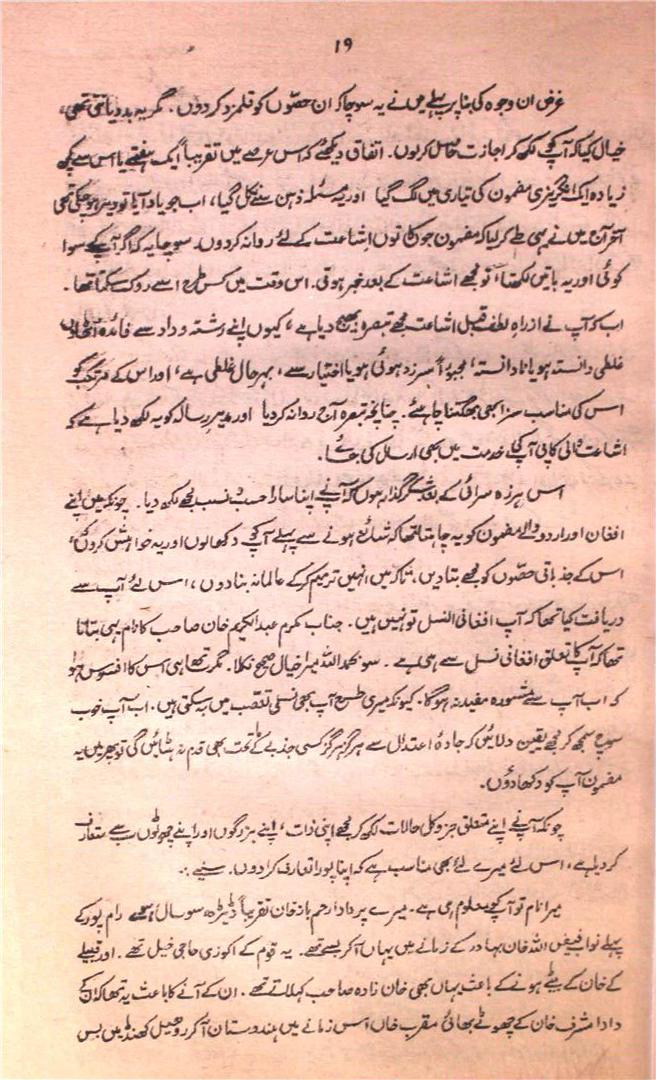 ۱۹
غرض ان وجوہ کی بنا پر پہلے میں نے یہ سوچا کہ ان حصوں کو قلمزد کر دوں۔ مگر یہ بددیانتی تھی،
خیال کیا کہ آپ کو لکھ کر اجازت حاصل کر لوں۔ اتفاق دیکھئے کہ اس عرصے میں تقریباً ایک ہفتے یا اس سے کچھ
زیادہ ایک انگریزی مضمون کی تیاری میں لگ گیا اور یہ مسئلہ ذہن سے نکل گیا، اب جو یاد آیا تو دیر ہو چکی تھی
آخر آج میں نے یہی طے کر لیا کہ مضمون جوں کا توں اشاعت کے لئے روانہ کر دوں۔ سوچا یہ کہ اگر آپ کے سوا
کوئی اور یہ باتیں لکھتا، تو مجھے اشاعت کے بعد خبر ہوتی۔ اس وقت میں کس طرح اسے روک سکتا تھا۔
اب کہ آپ نے ازراہِ لطف قبل اشاعت مجھے تبصرہ بھیج دیا ہے، کیوں اپنے رشتہ وداد سے فائدہ اٹھاؤں
غلطی دانستہ ہو یا نادانستہ، مجبوراً سرزد ہوئی ہو یا اختیار سے، بہرحال غلطی ہے، اور اس کے مرتکب کو
اس کی مناسب سزا بھی بھگتنا چاہئے۔ چنانچہ تبصرہ آج روانہ کر دیا اور مدیر رسالہ کو یہ لکھ دیا ہے کہ
اشاعت والی کاپی آپ کی خدمت میں بھی ارسال کی جائے۔
اس ہرزہ سرائی کے بعد شکر گذار ہوں کہ آپ نے اپنا سارا حسب و نسب مجھے لکھ دیا۔ چونکہ میں اپنے
افغان اور اردو والے مضمون کو یہ چاہتا تھا کہ شائع ہونے سے پہلے آپ کو دکھا لوں اور یہ خواہش کروں کہ
اس کے جذباتی حصوں کو مجھے بتا دیں، تاکہ میں انہیں ترمیم کر کے عالمانہ بنا دوں، اس لئے آپ سے
دریافت کیا تھا کہ آپ افغانی النسل تو نہیں ہیں۔ جناب مکرم عبدالحکیم خان صاحب کا نام یہی بتاتا
تھا کہ آپ کا تعلق افغانی نسل سے ہی ہے۔ سو بحمد اللہ میرا خیال صحیح نکلا۔ مگر ساتھ ہی اس کا افسوس ہوا
کہ اب آپ سے مشورہ مفید نہ ہوگا۔ کیونکہ میری طرح آپ بھی نسلی تعصب میں بہہ سکتی ہیں۔ اب آپ خوب
سوچ سمجھ کر مجھے یقین دلائیں کہ جادہ اعتدال سے ہرگز ہرگز کسی جذبے کے تحت بھی قدم نہ ہٹائیں گی تو پھر میں یہ
مضمون آپ کو دکھا دوں۔
چونکہ آپ نے اپنے متعلق جزو کل حالات لکھ کر مجھے اپنی ذات، اپنے بزرگوں اور اپنے چھوٹوں سب سے متعارف
کر دیا ہے، اس لئے میرے لئے بھی مناسب ہے کہ اپنا پورا تعارف کرا دوں۔ سنیے۔
میرا نام تو آپ کو معلوم ہی ہے۔ میرے پردادا رحم باز خان تقریباً ڈیڑھ سو سال ہوئے رام پور کے
پہلے نواب فیض اللہ خان بہادر کے زمانے میں یہاں آ کر بسے تھے۔ یہ قوم کے اکوزی حاجی خیل تھے۔ اور قبیلے
کے خان کے بیٹے ہونے کے باعث یہاں بھی خان زادہ صاحب کہلاتے تھے۔ ان کے آنے کا باعث یہ تھا کہ ان کے
دادا مشرف خان کے چھوٹے بھائی مقرب خاں اس زمانے میں ہندوستان آ کر روہیل کھنڈ میں بس